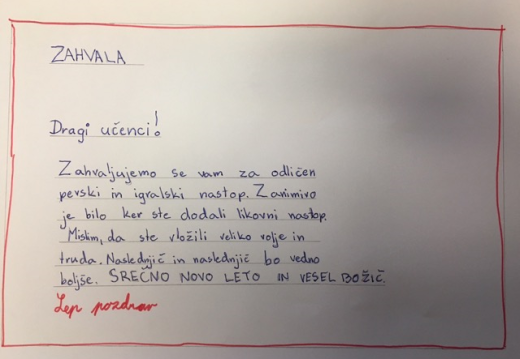 ZAHVALA
Dragi učenci!
Zahvaljujemo se vam za odličen
pevski in igralski nastop. Zanimivo
je bilo ker ste dodali likovni nastop.
Mislim, da ste vložili veliko volje in
truda. Naslednjič in naslednjič bo vedno
boljše. SREČNO NOVO LETO IN VESEL BOŽIČ.
Lep pozdrav